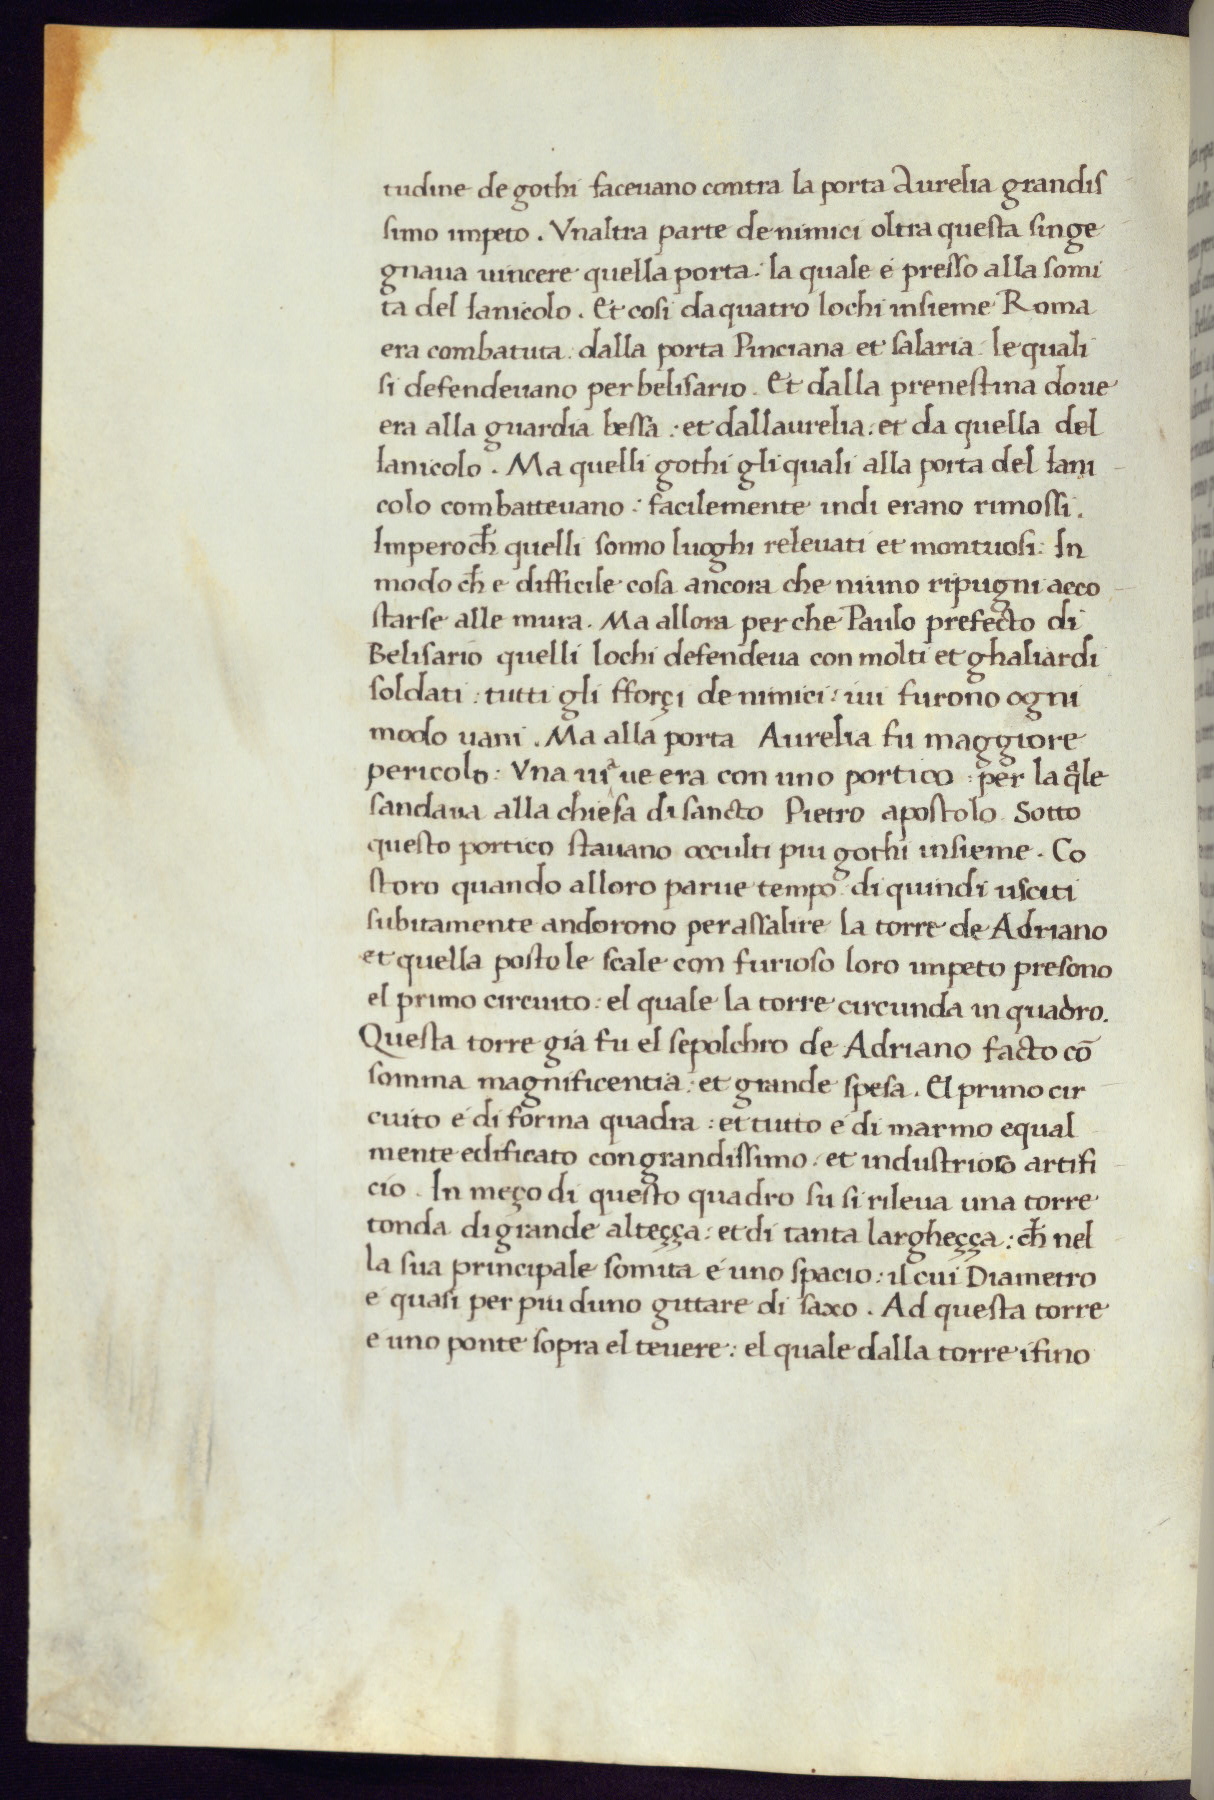 tudine de gothi faceuano contra la porta Aurelia grandis
simo impeto . Vnaltra parte de nimici oltra questa singe
gnaua uincere quella porta : la quale é presso alla somi
ta del Ianicolo . Et cosi da quatro lochi insieme Roma
era combatuta : dalla porta Pinciana et salaria : le quali
si defendeuano per belisario . Et dalla prenestina doue
era alla guardia bessa : et dallaurelia : et da quella del
Ianicolo . Ma quelli gothi gli quali alla porta del Iani
colo combatteuano : facilemente indi erano rimossi .
Imperoch̄ quelli sonno luoghi releuati et montuosi : In
modo ch̄ e difficile cosa ancora che niuno ripugni acco
starse alle mura . Ma allora per che Paulo prefecto di
Belisario quelli lochi defendeua con molti et ghaliardi
soldati : tutti gli fforçi de nimici : iui furono ogni
modo uani . Ma alla porta Aurelia fu maggiore
pericolo : Vna uia ue era con uno portico : per la q̄le
sandaua alla chiesa di sancto Pietro apostolo Sotto
questo portico stauano occulti piu gothi insieme . Co
storo quando alloro parue tempo di quindi usciti
subitamente andorono per assalire la torre de Adriano
et quella posto le scale con furioso loro impeto presono
el primo circuito : el quale la torre circunda in quadro .
Questa torre giá fu el sepolchro de Adriano facto cō
somma magnificentia : et grande spesa . El primo cir
cuito é di forma quadra : et tutto é di marmo equal
mente edificato con grandissimo : et industrioso artifi
cio . In meço di questo quadro su si rileua una torre
tonda di grande alteçça : et di tanta largheçça : ch̄ nel
la sua principale somita é uno spacio : il cui Diametro
e quasi per piu duno gittare di saxo . Ad questa torre
e uno ponte sopra el teuere : el quale dalla torre ifino